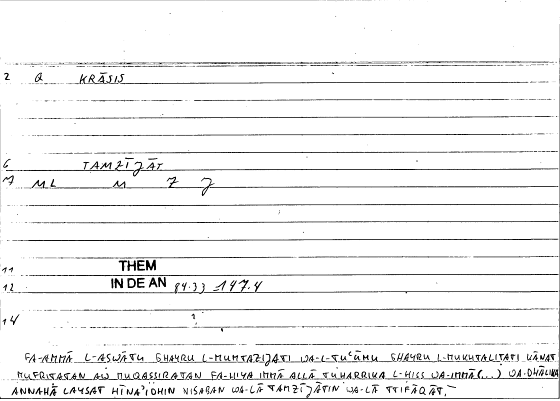 2 Q KRĀSIS
6 TAMZĪJĀT
7 ML M Z J
11 THEM
12 IN DE AN 84.33 147.4
14
FA-AMMĀ L-ASWĀTU GHAYRU L-MUMTAZIJATI WA-L-TUʿŪMU GHAYRU L-MUKHTALITATI KĀNAT
MUFRITATAN AW MUQASSIRATAN FA-HIYA IMMĀ ALLĀ TUHARRIKA L-HISS WA-IMMĀ (...) WA-DHĀLIKA
ANNAHĀ LAYSAT HĪNAʾIDHIN NISABAN WA-LĀ TAMZĪJĀTIN WA-LĀ TTIFĀQĀT.